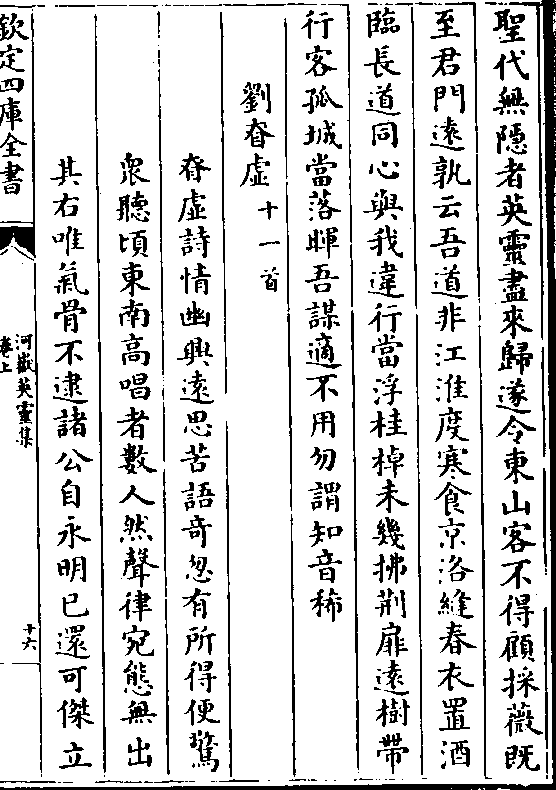 聖代無隠者英靈盡來歸遂令東山客不得顧採薇既
至君門遠孰云吾道非江淮度寒食京洛縫春衣置酒
臨長道同心與我違行當浮桂棹未幾拂荆扉遠樹帶
行客孤城當落暉吾謀適不用勿謂知音稀
劉眘虛十一首
眘虛詩情幽興遠思苦語奇忽有所得便驚
衆聽頃東南髙唱者數人然聲律宛態無出
其右唯氣骨不逮諸公自永明已還可傑立
欽定四庫全書
河嶽英靈集
卷上
十六